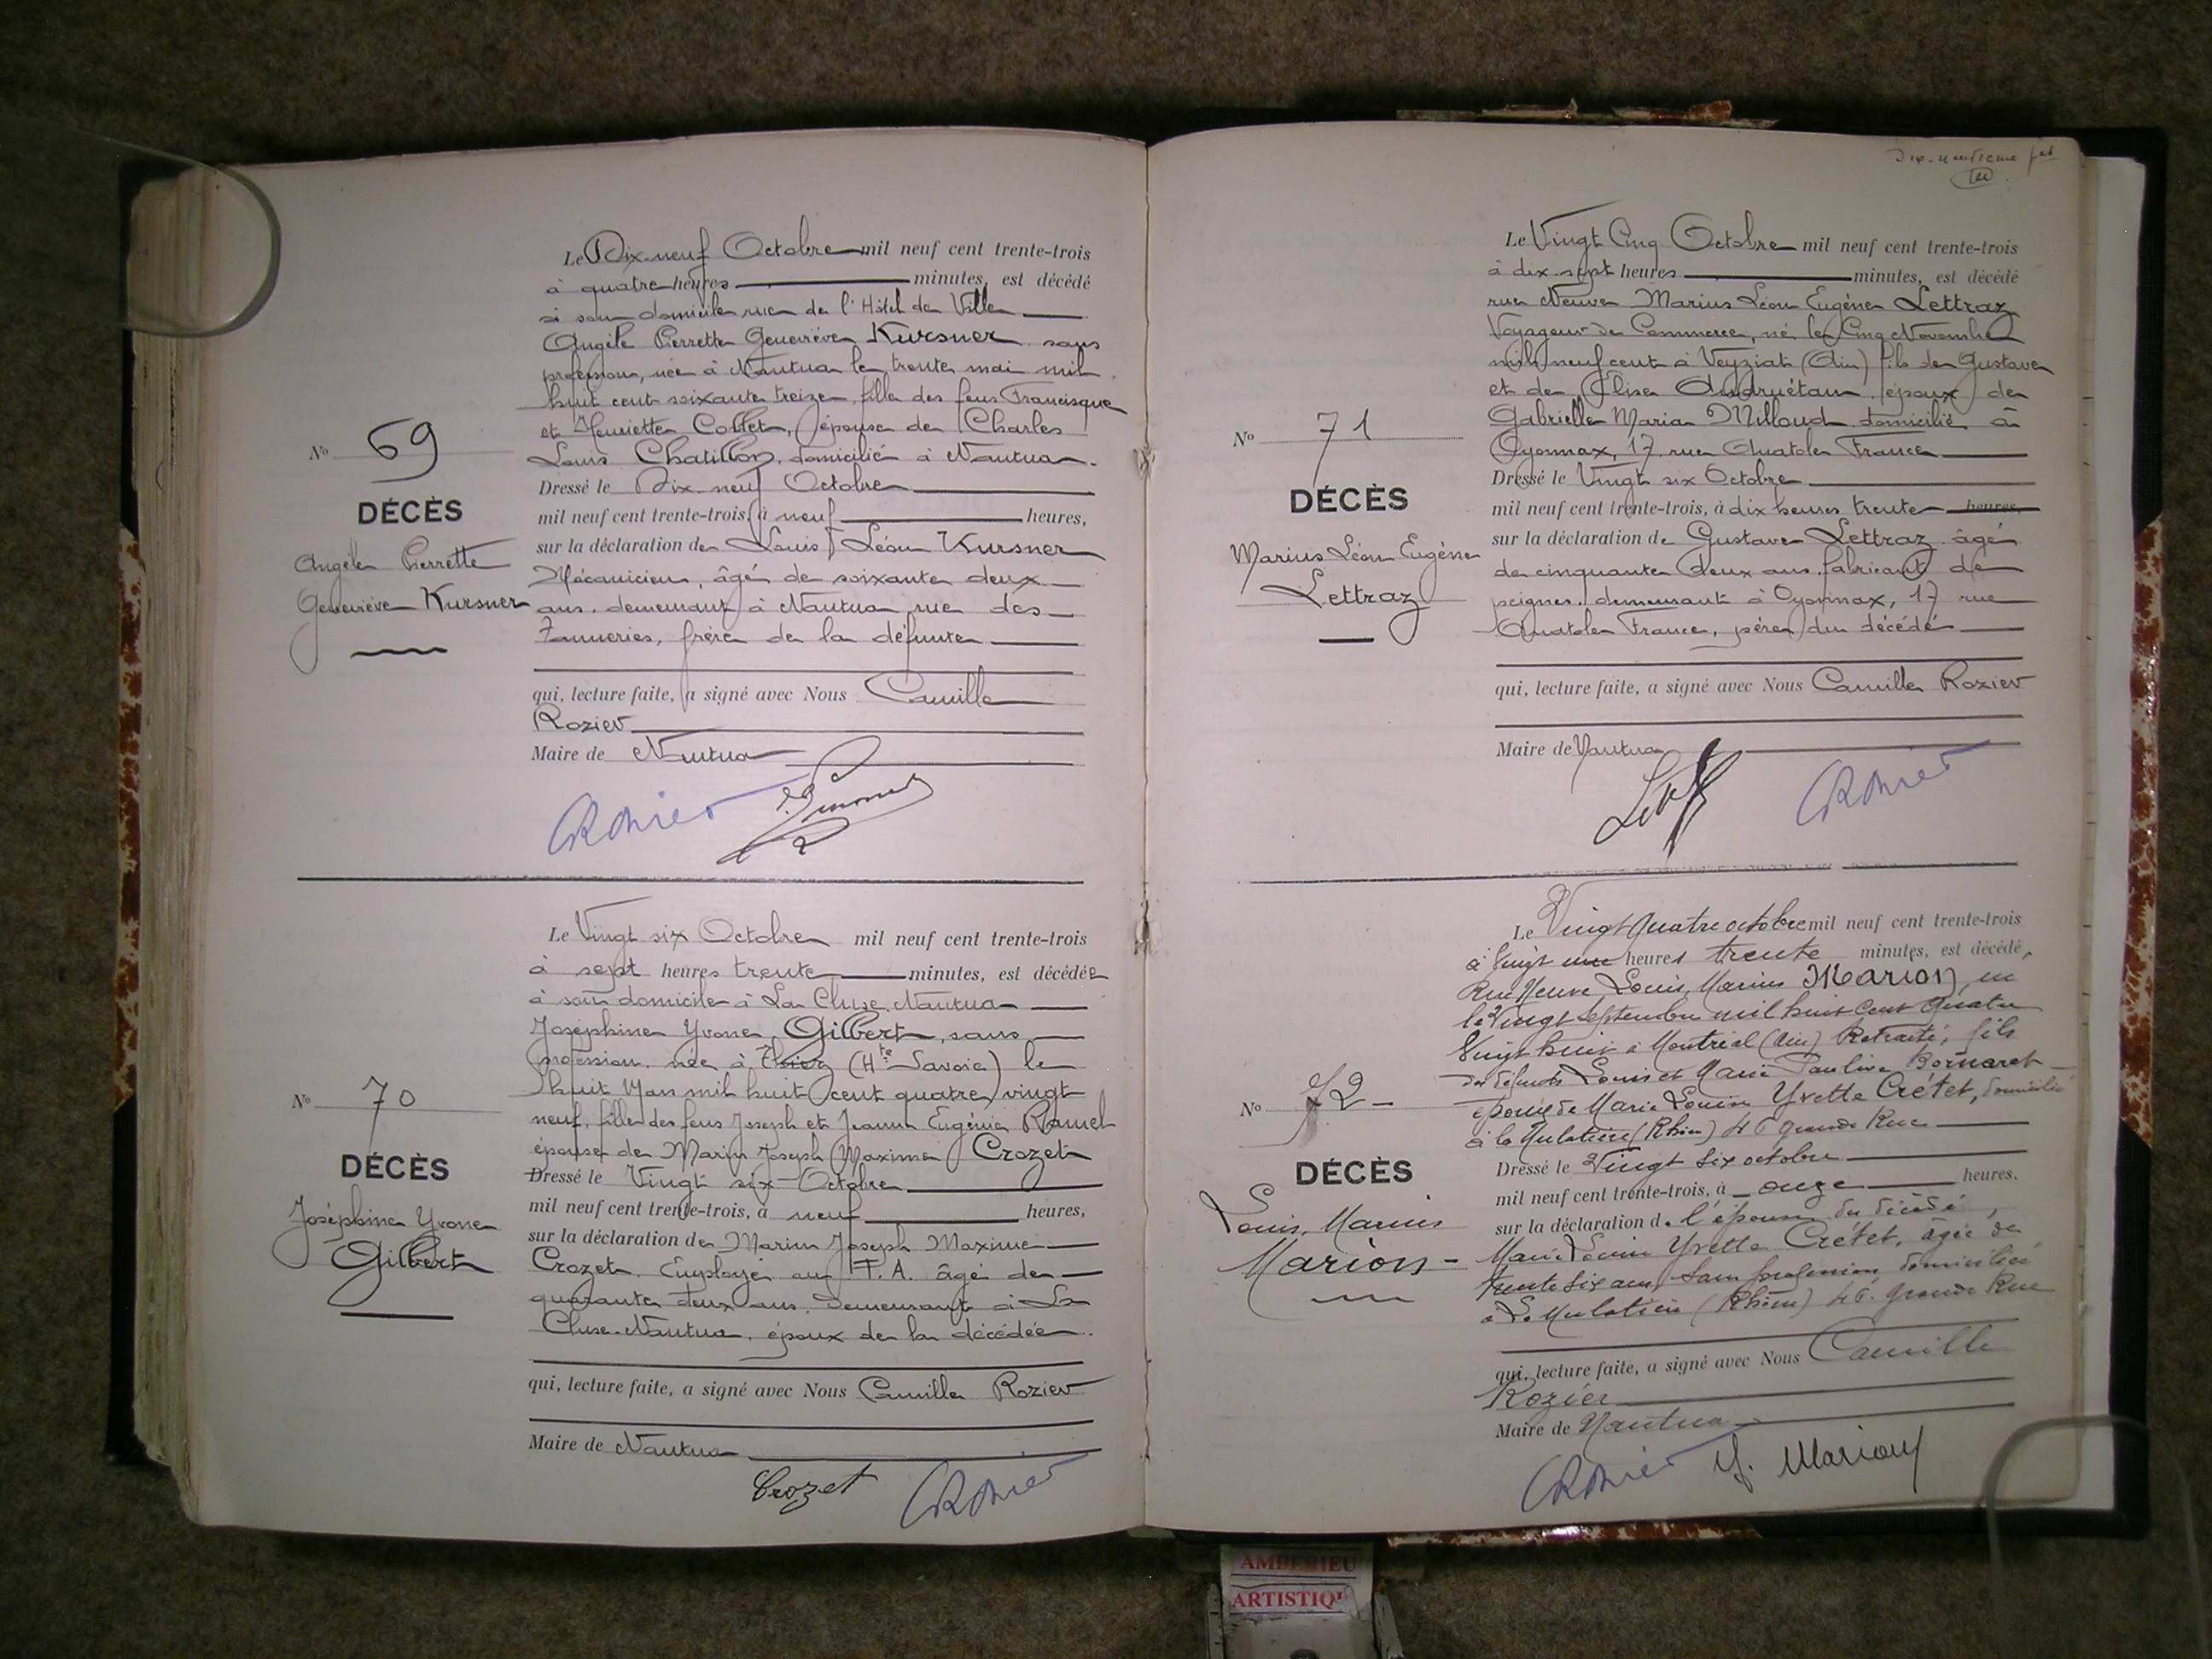 Le Dix-neuf Octobre mil neuf cent trente-trois
à quatre heures minutes, est décédé
à son domicile rue de l'Hôtel de Ville
Angèle Pierrette Geneviève Kursner sans
profession, née à Nantua le trente mai mil
huit cent soixante treize, fille des feus Francisque
et Henriette Collet, épouse de Charles
Louis Chatillon, domicilié à Nantua.
No 69
DÉCÈS
Angèle Pierrette
Geneviève Kursner
Dressé le Dix-neuf Octobre
mil neuf cent trente-trois, à neuf heures,
sur la déclaration de Louis Léon Kursner
Mécanicien, âgé de soixante deux
ans, demeurant à Nantua, rue des
Tanneries, frère de la défunte
qui, lecture faite, a signé avec Nous Camille
Rozier
Maire de Nantua
CRozier
Le Vingt six Octobre mil neuf cent trente-trois
à sept heures trente minutes, est décédée
à son domicile à La Cluse, Nantua
Joséphine Yvone Gilbert, sans
profession, née à (Hte Savoie) le
huit Mars mil huit cent quatre vingt
neuf, fille des feus Joseph et Jeanne Eugénie Ramel
épouse de Marius Joseph Maxime Crozet
No 70
DÉCÈS
Joséphine Yvone
Gilbert
Dressé le Vingt six Octobre
mil neuf cent trente-trois, à neuf heures,
sur la déclaration de Marius Joseph Maxime
Crozet, Employé au T.A. âgé de
quarante deux ans, demeurant à La
Cluse-Nantua, époux de la décédée.
qui, lecture faite, a signé avec Nous Camille Rozier
Maire de Nantua
Crozet CRozier
Dix-neuvième
Le Vingt Cinq Octobre mil neuf cent trente-trois
à dix-sept heures minutes, est décédé
rue Neuve Marius Léon Eugène Lettraz
Voyageur de Commerce, né le Cinq Novembre
mil neuf cent à Veyziat (Ain) fils de Gustave
et de Elise Andruétan, époux de
Gabrielle Maria Milloud domicilié à
Oyonnax, 17, rue Anatole France
No 71
DÉCÈS
Marius Léon Eugène
Lettraz
Dressé le Vingt six Octobre
mil neuf cent trente-trois, à dix heures trente heures,
sur la déclaration de Gustave Lettraz âgé
de cinquante deux ans, fabricant de
peignes, demeurant à Oyonnax, 17 rue
Anatole France, père du décédé
qui, lecture faite, a signé avec Nous Camille Rozier
Maire de Nantua
CRozier
Le Vingt Quatre octobre mil neuf cent trente-trois
à Vingt une heures trente minutes, est décédé,
Rue Neuve, Louis, Marius Marion, né
le Vingt Septembre mil huit cent Quatre
Vingt huit à Montréal (Ain) Retraité, fils
des défunts Louis et Marie Pauline Bornaret
époux de Marie Louise Yvette Crétet, domicilié
à la Mulatière (Rhône) 46 grande Rue
No 72 -
DÉCÈS
Louis, Marius
Marion -
Dressé le Vingt Six octobre
mil neuf cent trente-trois, à onze heures,
sur la déclaration de l'épouse du décédé,
Marie Louise Yvette Crétet, âgée de
trente six ans, Sans profession, domiciliée
à La Mulatière (Rhône) 46. grande Rue
qui, lecture faite, a signé avec Nous Camille
Rozier
Maire de Nantua
CRozier Y. Marion
AMBERIEU
ARTISTIQUE